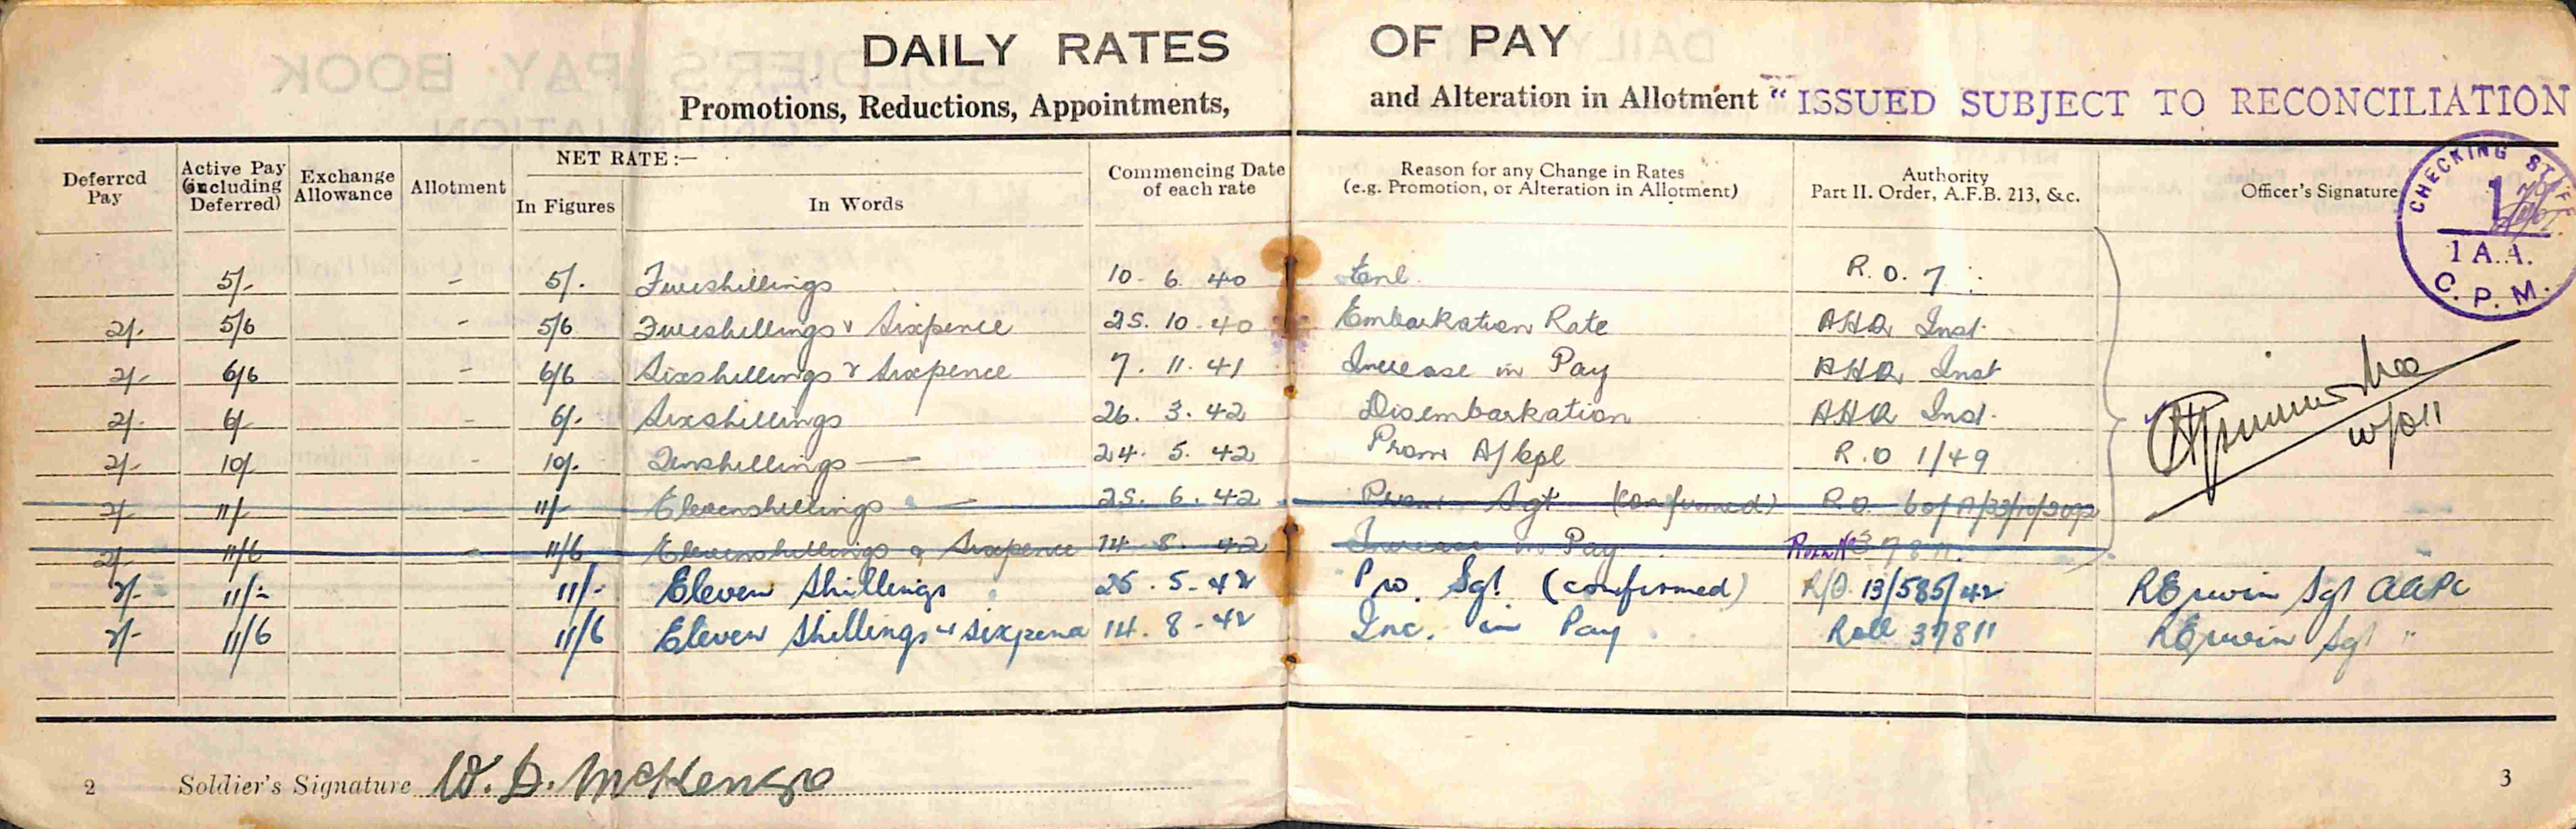 DAILY RATES OF PAY
Promotions, Reductions, Appointments, and Alteration in Allotment "ISSUED SUBJECT TO RECONCILIATION
Deferred Pay
Active Pay (including Deferred)
Exchange Allowance
Allotment
NET RATE :—
In Figures
In Words
Commencing Date of each rate
Reason for any Change in Rates (e.g. Promotion, or Alteration in Allotment)
Authority Part II. Order, A.F.B. 213, &c.
Officer's Signature
CHECKING STAFF
1
1 A.A.
C. P. M.
5/- - 5/- Fiveshillings 10. 6. 40 Enl. R.O. 7
2/- 5/6 - 5/6 Fiveshillings & Sixpence 25. 10. 40 Embarkation Rate AHQ Inst
2/- 6/6 - 6/6 Sixshillings & Sixpence 7. 11. 41 Increase in Pay AHQ Inst
2/- 6/- - 6/- Sixshillings 26. 3. 42 Disembarkation AHQ Inst.
2/- 10/ - 10/- Tenshillings — 24. 5. 42 Prom A/Cpl R.O 1/49
2/- 11/- - 11/- Elevenshillings — 25. 6. 42 Prom Sgt (confirmed) R.O.
2/- 11/6 - 11/6 Elevenshillings & Sixpence 14. 8. 42 Increase in Pay
2/- 11/- 11/- Eleven Shillings 25. 5. 42 Pro. Sgt (confirmed) R/O. 13/585/42 R Erwin Sgt AAPC
2/- 11/6 11/6 Eleven Shillings & Sixpence 14. 8. 42 Inc. in Pay Roll 37811 R Erwin Sgt "
W/O II
2 Soldier's Signature W. D. McKenzie
3